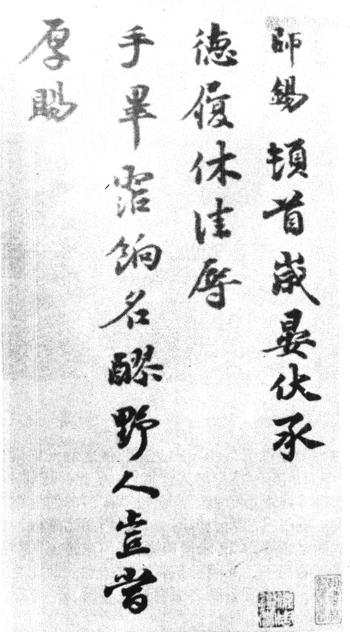 師錫頓首歲晏伏承
德履休佳辱
手畢霑餉名醪野人豈當
厚賜